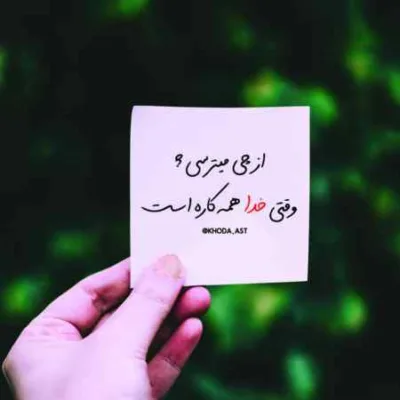 از چی میترسی ؟
وقتی خدا همه کاره است
@KHODA_AST